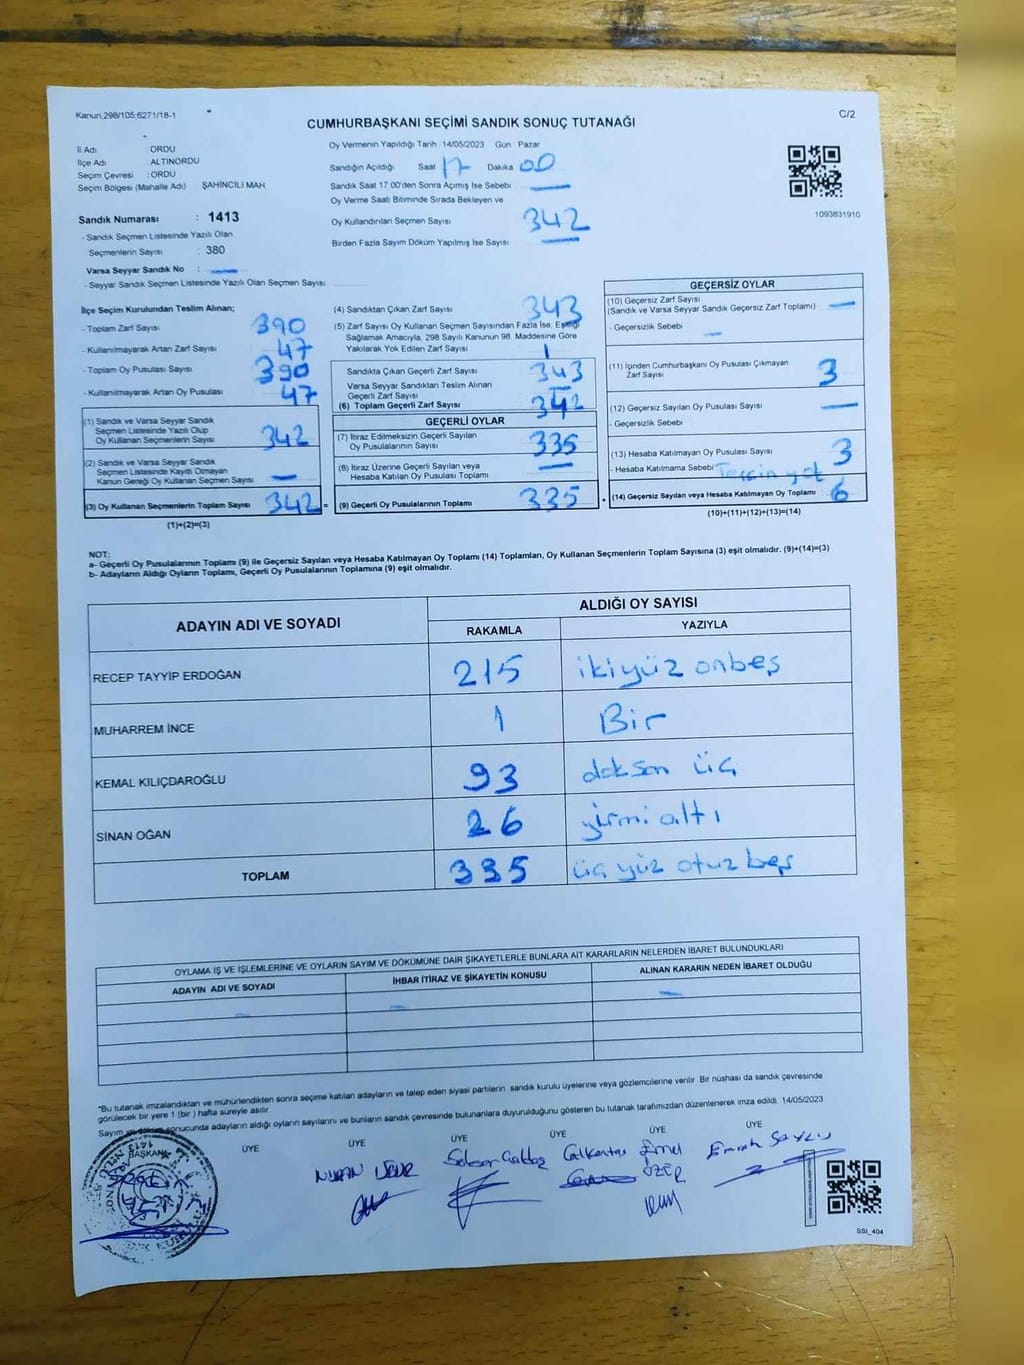 Kanun,298/105;6271/18-1
C/2
CUMHURBAŞKANI SEÇİMİ SANDIK SONUÇ TUTANAĞI
İl Adı ORDU
İlçe Adı ALTINORDU
Seçim Çevresi : ORDU
Seçim Bölgesi (Mahalle Adı) ŞAHİNCİLİ MAH
Sandık Numarası : 1413
- Sandık Seçmen Listesinde Yazılı Olan
Seçmenlerin Sayısı : 380
Varsa Seyyar Sandık No : —
- Seyyar Sandık Seçmen Listesinde Yazılı Olan Seçmen Sayısı:
Oy Vermenin Yapıldığı Tarih 14/05/2023 Gün Pazar
Sandığın Açıldığı Saat 17 Dakika 00
Sandık Saat 17:00'den Sonra Açımış İse Sebebi —
Oy Verme Saati Bitiminde Sırada Bekleyen ve
Oy Kullandırılan Seçmen Sayısı 342
Birden Fazla Sayım Döküm Yapılmış İse Sayısı —
1093831910
İlçe Seçim Kurulundan Teslim Alınan;
- Toplam Zarf Sayısı 390
- Kullanılmayarak Artan Zarf Sayısı 47
- Toplam Oy Pusulası Sayısı 390
- Kullanılmayarak Artan Oy Pusulası 47
(1) Sandık ve Varsa Seyyar Sandık
Seçmen Listesinde Yazılı Olup
Oy Kullanan Seçmenlerin Sayısı 342
(2) Sandık ve Varsa Seyyar Sandık
Seçmen Listesinde Kayıtlı Olmayan
Kanun Gereği Oy Kullanan Seçmen Sayısı —
(3) Oy Kullanan Seçmenlerin Toplam Sayısı 342 =
(1)+(2)=(3)
(4) Sandıktan Çıkan Zarf Sayısı 343
(5) Zarf Sayısı Oy Kullanan Seçmen Sayısından Fazla İse, Eşitliği
Sağlamak Amacıyla, 298 Sayılı Kanunun 98. Maddesine Göre
Yakılarak Yok Edilen Zarf Sayısı 1
Sandıkta Çıkan Geçerli Zarf Sayısı 343
Varsa Seyyar Sandıktan Teslim Alınan
Geçerli Zarf Sayısı —
(6) Toplam Geçerli Zarf Sayısı 342
GEÇERLİ OYLAR
(7) İtiraz Edilmeksizin Geçerli Sayılan
Oy Pusulalarının Sayısı 335
(8) İtiraz Üzerine Geçerli Sayılan veya
Hesaba Katılan Oy Pusulası Toplamı —
(9) Geçerli Oy Pusulalarının Toplamı 335 +
GEÇERSİZ OYLAR
(10) Geçersiz Zarf Sayısı
(Sandık ve Varsa Seyyar Sandık Geçersiz Zarf Toplamı) —
- Geçersizlik Sebebi —
(11) İçinden Cumhurbaşkanı Oy Pusulası Çıkmayan
Zarf Sayısı 3
(12) Geçersiz Sayılan Oy Pusulası Sayısı —
- Geçersizlik Sebebi
(13) Hesaba Katılmayan Oy Pusulası Sayısı 3
- Hesaba Katılmama Sebebi Tercih yok
(14) Geçersiz Sayılan veya Hesaba Katılmayan Oy Toplamı 6
(10)+(11)+(12)+(13)=(14)
NOT:
a- Geçerli Oy Pusulalarının Toplamı (9) ile Geçersiz Sayılan veya Hesaba Katılmayan Oy Toplamı (14) Toplamları, Oy Kullanan Seçmenlerin Toplam Sayısına (3) eşit olmalıdır. (9)+(14)=(3)
b- Adayların Aldığı Oyların Toplamı, Geçerli Oy Pusulalarının Toplamına (9) eşit olmalıdır.
ADAYIN ADI VE SOYADI
ALDIĞI OY SAYISI
RAKAMLA YAZIYLA
RECEP TAYYİP ERDOĞAN 215 ikiyüz onbeş
MUHARREM İNCE 1 Bir
KEMAL KILIÇDAROĞLU 93 doksan üç
SİNAN OĞAN 26 yirmi altı
TOPLAM 335 üç yüz otuz beş
OYLAMA İŞ VE İŞLEMLERİNE VE OYLARIN SAYIM VE DÖKÜMÜNE DAİR ŞİKAYETLERLE BUNLARA AİT KARARLARIN NELERDEN İBARET BULUNDUKLARI
ADAYIN ADI VE SOYADI İHBAR İTİRAZ VE ŞİKAYETİN KONUSU ALINAN KARARIN NEDEN İBARET OLDUĞU
— — —
*Bu tutanak imzalandıktan ve mühürlendikten sonra seçime katılan adayların ve talep eden siyasi partilerin sandık kurulu üyelerine veya gözlemcilerine verilir. Bir nüshası da sandık çevresinde
görülecek bir yere 1 (bir) hafta süreyle asılır.
Sayım ve döküm sonucunda adayların aldığı oyların sayılarını ve bunların sandık çevresinde bulunanlara duyurulduğunu gösteren bu tutanak tarafımızdan düzenlenerek imza edildi. 14/05/2023
BAŞKAN ÜYE ÜYE ÜYE ÜYE ÜYE ÜYE
NURAN UĞUR
Emel ÖZER
Emrah
SSI_404